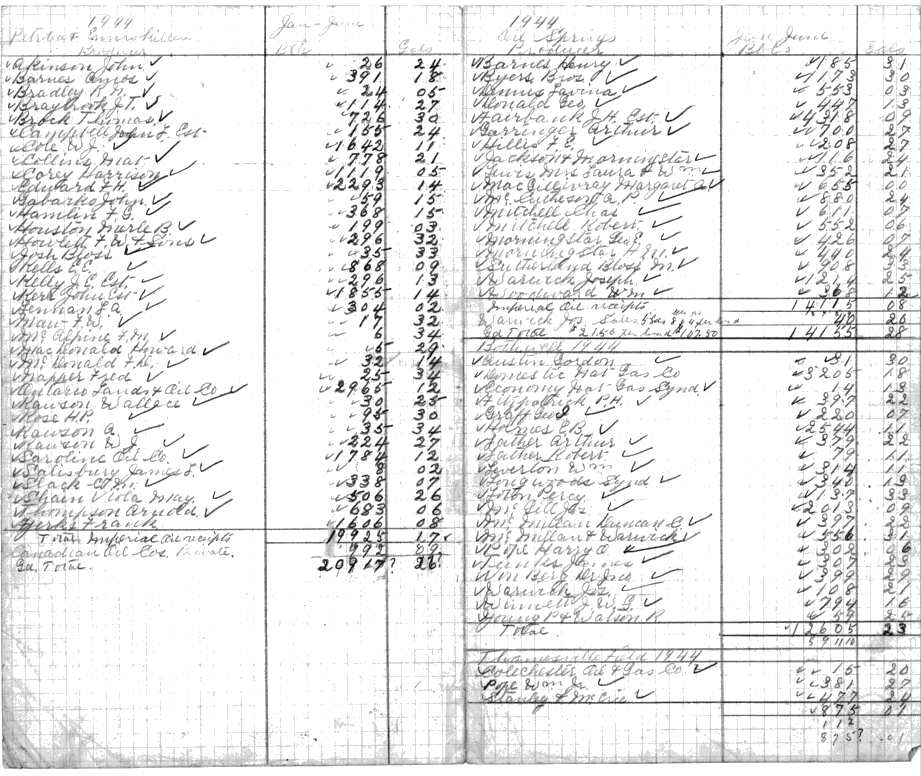 1944 Jan-June
Petrolia & Enniskillen
Producer Bbls Gals
Akinson John 26 24
Barnes Amos 391 18
Bradley R.N. 24 05
Braybrook J.T. 114 27
Brock Thomas 726 30
Campbell John L. Est 155 24
Cole W.J. 1642 11
Collins Mat 778 21
Corey Harrison 1119 05
Edward F.H. 2293 14
Gabarko John 59 15
Hamlin F.G. 368 15
Houston Merle B. 199 03
Howlett F.W. & Sons 296 32
Josh Bloss 35 33
Kells C.E. 868 09
Kelly J.E. Est. 296 13
Kerr John Est 1855 14
304 02
Maw F.W. 17 32
McAlpine F.M. 6 34
MacDonald Howard 5 29
McDonald F.D. 32 14
Napper Fred 25 34
Ontario Lands & Oil Co 2965 12
Rawson Wallace 30 25
Rose H.P. 95 30
Rawson A. 35 34
Rawson W.J. 224 27
Saroline Oil Co. 1784 12
Salisbury James L. 8 02
Slack C.M. 338 07
Shain Viola May 506 26
Thompson Arnold 683 06
Yerks Frank 1606 08
Total Imperial Oil receipts 19925 17
Canadian Oil Cos. Private. 992 09
Gd. Total. 20917? 26?
1944
Oil Springs Jan June
Producer Bbls Gals
Barnes Henry 185 31
Byers Bros. 1173 30
Dennis Lavina 553 03
Donald Geo. 447 18
Fairbank J.H. Est. 4318 09
Garringer Arthur 700 27
Hillis F.E. 208 27
Jackson & Morningstar 116 24
Lewis Mrs Laura & Wm 352 21
MacGillivray Margaret A 655 00
McCutcheson A.P. 880 24
Mitchell Chas 611 07
Mitchell Robert 552 06
Morningstar Geo E. 426 07
Morningstar H.M. 440
Sutherland Bloss M. 208
Warwick Joseph
Woodward Wm 368 12
Imperial Oil receipts 14115 08
Warwick Jos. Sales 40 20
Gd Total 14155 28
Bothwell 1944
Austin Gordon 31 30
Domestic Nat Gas Co 3205 18
Economy Nat Gas Synd. 14 13
Fitzpatrick P.H. 397 22
Graff Geo 220 07
Holmes E.B. 2544 11
Lather Arthur 379 21
Lather Robert
Leverton Wm 314 11
Longwoods Synd
Percy 137
McGill Jas. 2013 09
McMillan Duncan C. 397
McMillan & Warwick 556 31
Pope Harry O. 302 06
James 307
Von Berg Dr Jno 399
Warwick Jos. 108 21
Winnett J.W.G. 794 16
Young P & Watson R 59 25
Total 12605 23
Thamesville Field 1944
Colechester Oil & Gas Co. 15 20
Pope Wm Jr. 381 27
Stanley & McCrie 477 24
875 01
112
875? .01